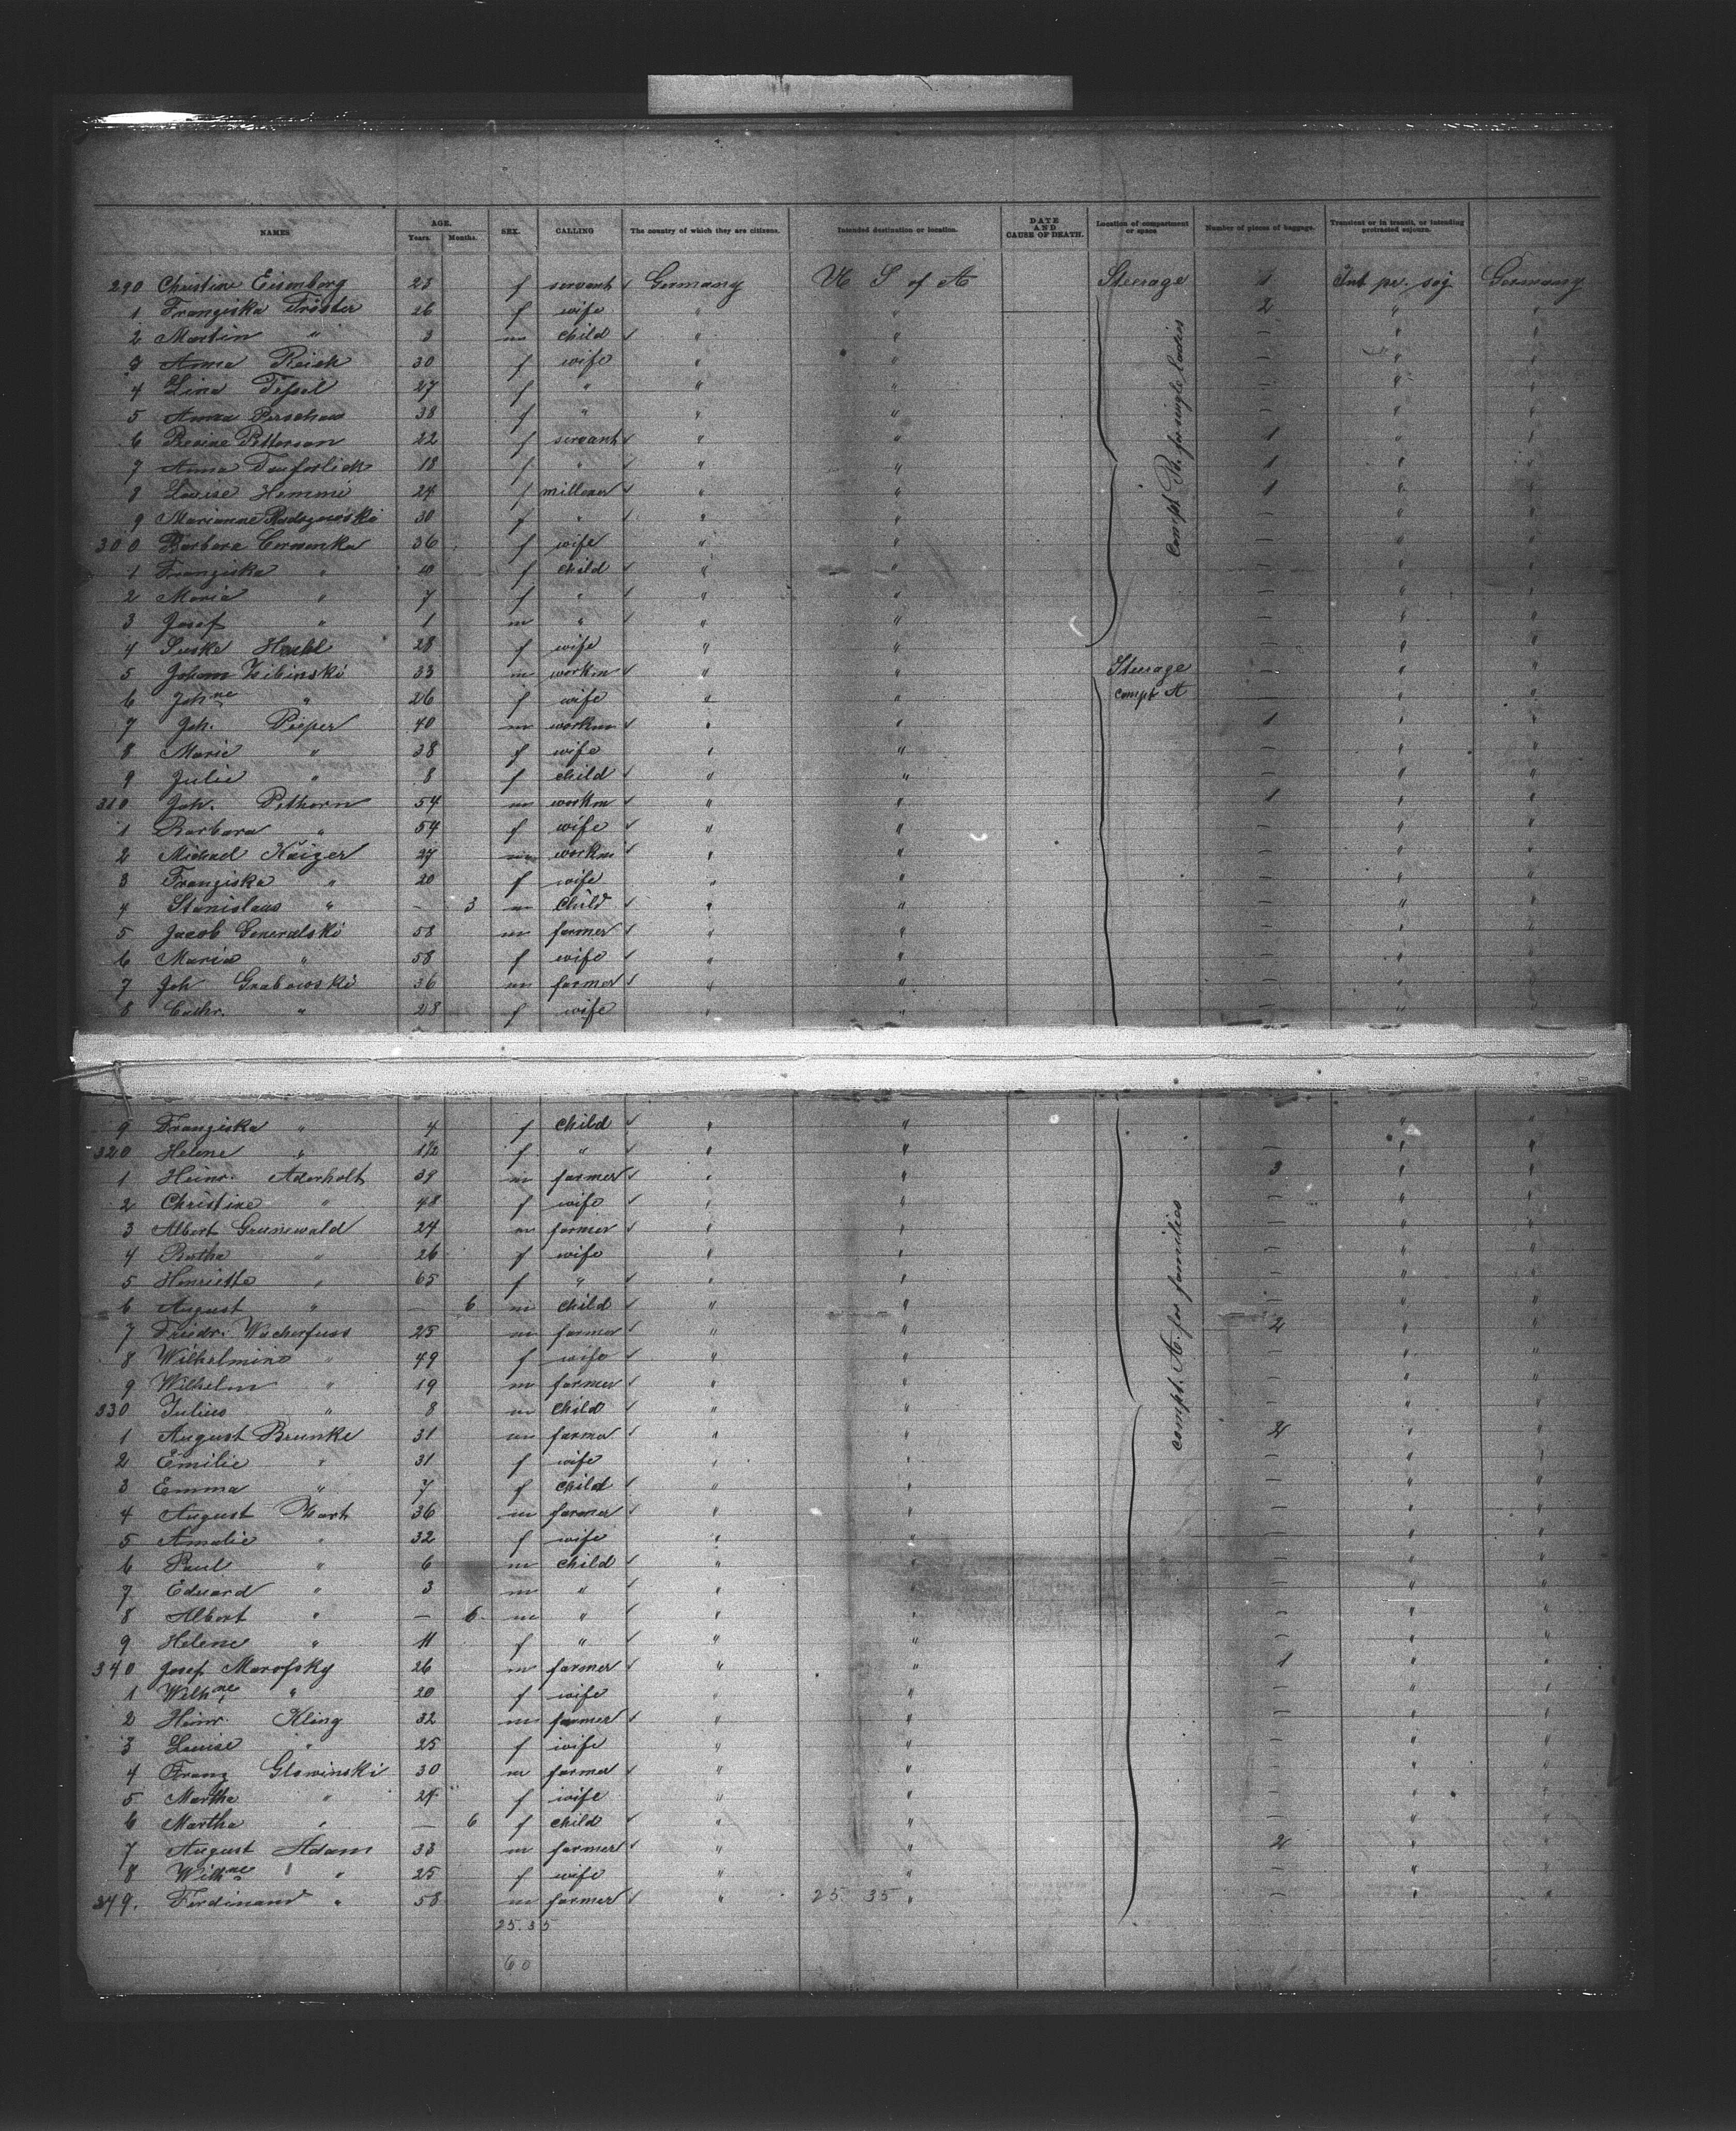 NAMES AGE. Years. Months. SEX. CALLING The country of which they are citizens. Intended destination or location. DATE AND CAUSE OF DEATH. Location of compartment or space Number of pieces of baggage. Transient or in transit, or intending protracted sojourn.
290 Christine Eisenberg 23 f servant Germany U S of A Steerage 1 Int pr. soj Germany
1 Franziska Tröster 26 f wife " " 2 " "
2 Martin " 3 m child " " — " "
3 Anna Reich 30 f wife " " — " "
4 Lina 27 f " " " — " "
5 Anna Perschau 38 f " " " — " "
6 Petterson 22 f servant " " 1 " "
7 Anna 18 f " " " 1 " "
8 Louise Hemmi 24 f millener " " 1 " "
9 Marianne 30 f " " " — " "
300 Barbara Cerwenka 36 f wife " " — " "
1 Franziska " f child " " — " "
2 Maria " 7 f " " " — " "
3 Josef " 1 m " " " — " "
4 28 f wife " " — " "
5 Johann Zibinski 33 m workm " " Steerage — " "
6 Joh.ne " 26 f wife " " compt A — " "
7 Joh. Pieper 40 m workm " " 1 " "
8 Marie " 38 f wife " " — " "
9 Julie " 8 f child " " — " "
310 Joh. Pethorn 54 m workm " " 1 " "
1 Barbara " 54 f wife " " — " "
2 Michael Kaizer 27 m workm " " — " "
3 Franziska " 20 f wife " " — " "
4 Stanislaus " — 3 m Child " " — " "
5 Jacob Generalski 58 m farmer " " — " "
6 Maria " 58 f wife " " — " "
7 Joh Grabowski 36 m farmer " " — " "
8 Cathr. " 28 f wife " " — " "
9 Franziska " 4 f child " " " "
320 Helene " 1½ f " " " — " "
1 Heinr. Aderholt 39 m farmer " " 3 " "
2 Christine " 48 f wife " " — " "
3 Albert Grunewald 24 m farmer " " — " "
4 " 26 f wife " " — " "
5 Henriette " 65 f " " " — " "
6 August " — 6 m child " " — " "
7 Friedr. Wacherfuss 25 m farmer " " 2 " "
8 Wilhelmine " 49 f wife " " — " "
9 Wilhelm " 19 m farmer " " — " "
330 Julius " 8 m child " " — " "
1 August Brunke 31 m farmer " " 2 " "
2 Emilie " 31 f wife " " — " "
3 Emma " 7 f child " " — " "
4 August 36 m farmer " " — " "
5 Amalie " 32 f wife " " — " "
6 Paul " 6 m child " " — " "
7 Eduard " 3 m " " " — " "
8 Albert " — 6 m " " " — " "
9 Helene " 11 f " " " — " "
340 Josef Marofsky 26 m farmer " " 1 " "
1 Wilh.ne " 20 f wife " " — " "
2 Heinr. Kling 32 m farmer " " — " "
3 Louise " 25 f wife " " — " "
4 Franz Glowinski 30 m farmer " " " "
5 Martha " 24 f wife " " " "
6 Martha " — 6 f child " " — " "
7 August Adam 33 m farmer " " 2 " "
8 Wilh.ne " 25 f wife " " — " "
349. Ferdinand " 58 m farmer " 25 35 " — " "
25.35
60
compt B. for single ladies
compt. A. for families